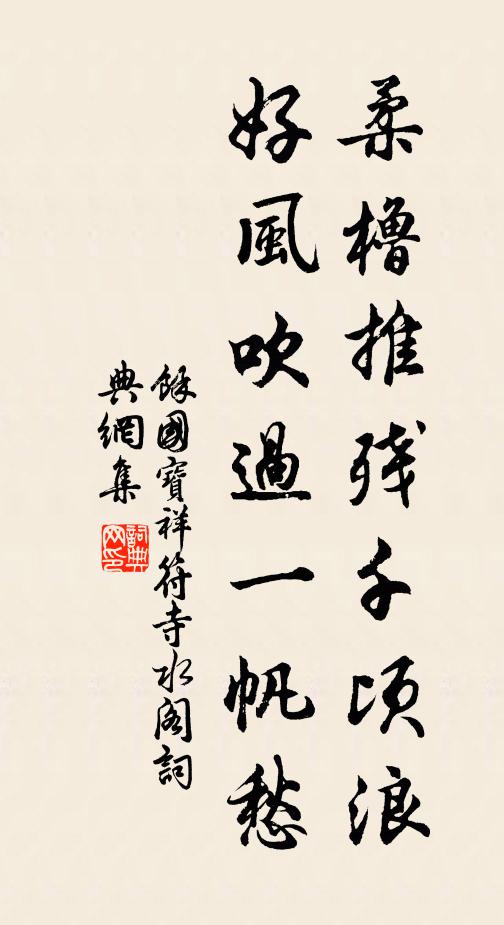 柔櫓推残千頃浪
好風吹過一帆愁
餘國寶祥符寺水阁詞
典網集
詞典
网印